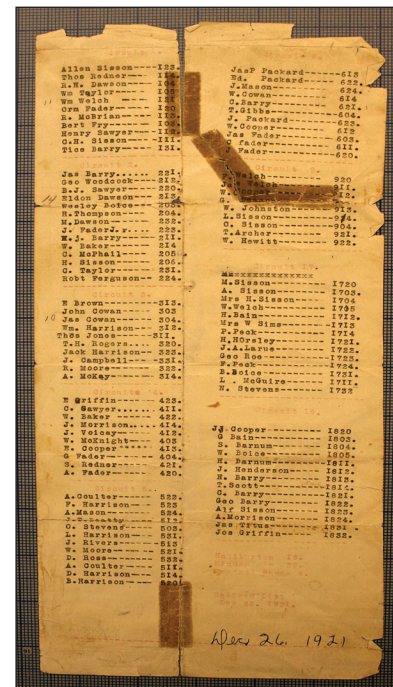 Allen Sisson----- 123.
Thos Redner---- 114.
R.H. Dawson---- 104
Wm Taylor------ 105
Wm Welch ------ 121
Orm Fader------ 120
R. McBrian----- 113.
Bert Fry------- 103.
Henry Sawyer--- 112.
C.H. Sisson---- 111.
Tice Barry----- 131.
Jas Barry..... 221.
Geo Woodcock--- 212.
D.J. Sawyer---- 220.
14 Eldon Dawson--- 213.
Wesley Boice--- 203.
R.Thompson----- 204.
M.Dawson------- 232.
J. FaderJ.r---- 223.
W.j. Barry----- 211.
W. Baker------- 214
C. McPhail----- 205.
H. Sisson------ 206.
C. Taylor------ 231.
Robt Ferguson-- 224.
E Brown------- 313.
John Cowan---- 303
10 Jas Cowan----- 304.
Wm. Harrison-- 312.
Thos Jones---- 311.
T.H. Rogers... 320.
Jack Harrison- 323.
J. Campbell--- 331.
R. Moore------ 322.
A. McKay------ 314.
E Griffin----- 423.
C. Sawyer..... 411.
W. Baker------ 422.
J. Morrison... 414.
J. Voicey----- 412.
W. McKnight--- 403
E. Cooper----- 413.
G Fader------- 404.
S. Redner----- 421.
A. Fader------ 420.
A.Coulter----- 522.
F. Harrison--- 523
A.Mason------- 524
J.T.Beatty---- 512.
O. Stevens---- 503.
L. Harrison--- 531.
J. Rivers----- 513
W. Moore------ 521.
D. Ross------- 532
A. Coulter---- 511.
D. Harrison--- 514.
B.Harrison----
JasP Packard----- 613
Ed. Packard----- 622.
J.Mason--------- 624.
W.Cowan--------- 614
C.Barry--------- 621.
T.Gibbs--------- 604.
J. Packard----- 623.
W.Cooper-------- 612
Jas Fader------- 603
fader------ 611.
Fader---------- 620.
Welch------- 920
Welch
W. Johnston----- 913.
L.Sisson-------- 914.
O. Sisson------- 904.
T.Archer-------- 921.
W. Hewitt------- 922.
M.Sisson-------- 1720
A. Sisson------- 1703.
Mrs H.Sisson---- 1704
W.Welch--------- 1705
H.Bain---------- 1712.
Mrs W Sims------ 1713
P.Peck---------- 1714
H.Horsley------- 1721.
J.A.Larue------- 1722.
Geo Roe--------- 1723.
F.Peck---------- 1724.
B.Boice--------- 1731.
L . McGuire----- 1711.
N. Stevens------ 1732
JJ Cooper------- 1820
G Bain---------- 1803.
S. Barnum------- 1804.
W. Boice-------- 1805.
H. Barnum------- 1811.
J. Henderson---- 1812.
H. Barry-------- 1813.
T.Scott--------- 1814.
C. Barry-------- 1821.
Geo Barry------- 1822.
Alf Sisson------ 1823.
A.Morrison------ 1824.
Jas Titus------- 1831.
Jos Griffin----- 1832.
Dec 26. 1921